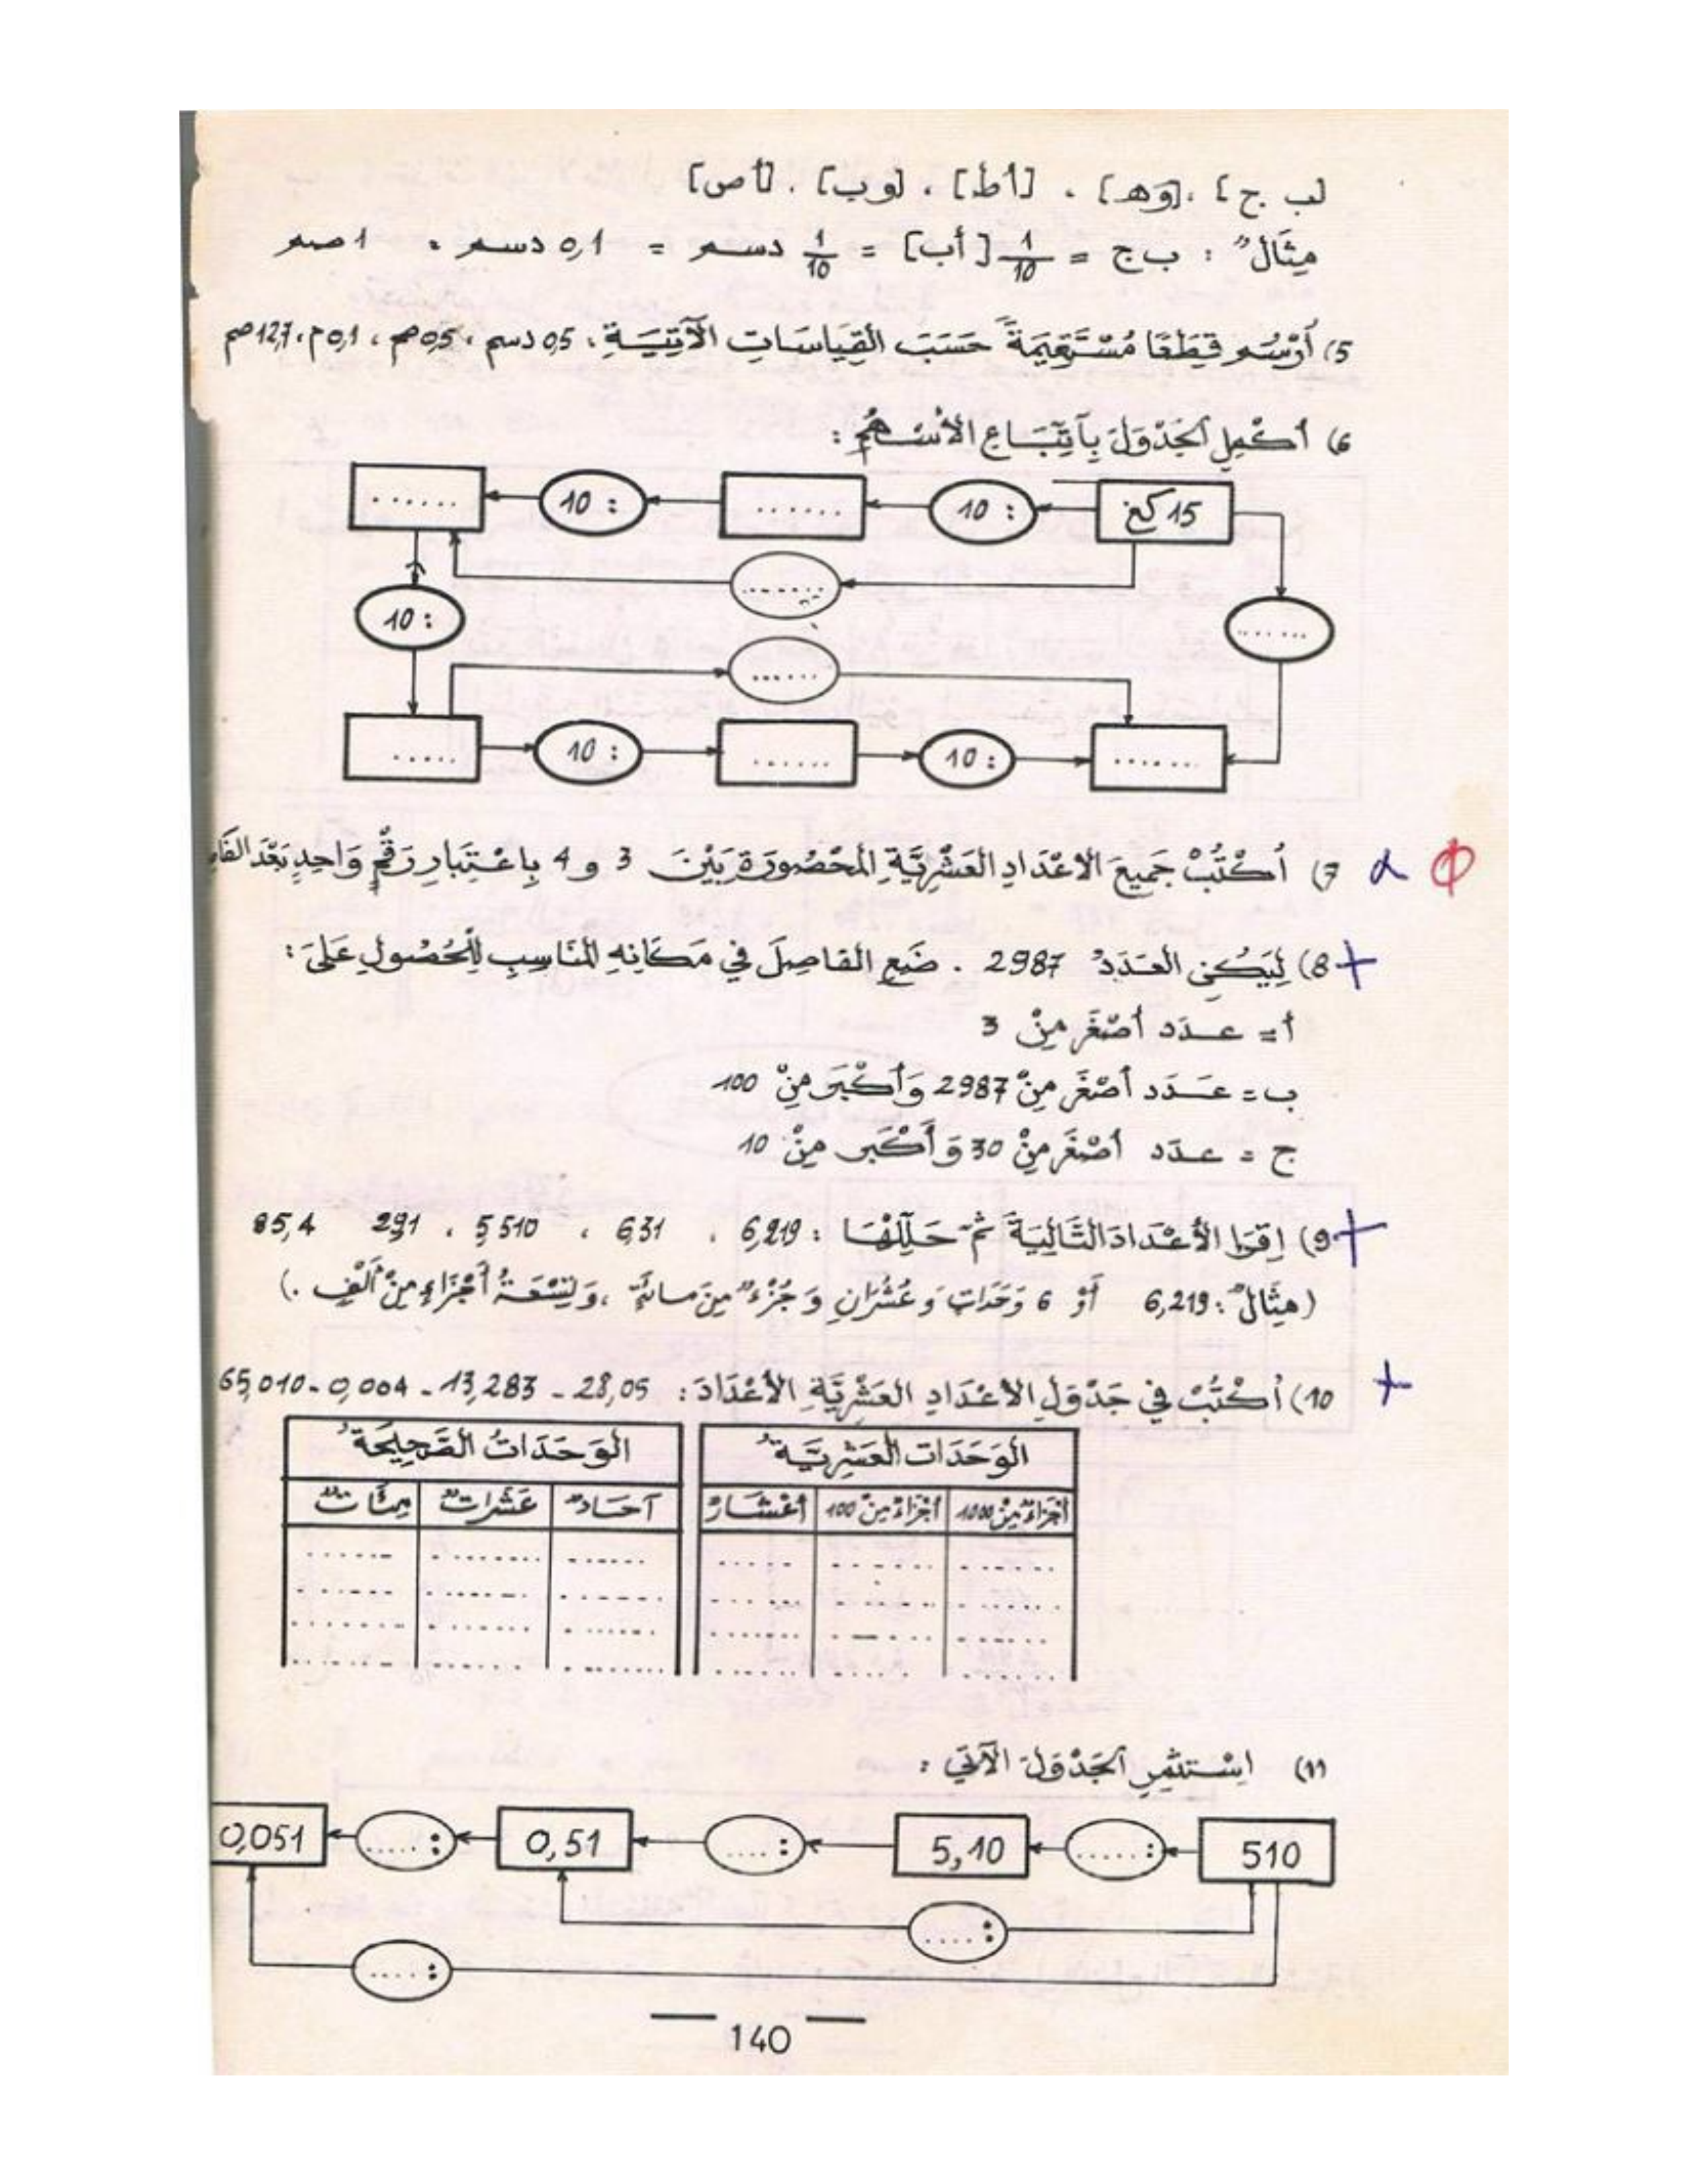 [ب ج] ، [وهـ] ، [أط] ، [وب] ، [أص]
مِثَالٌ : ب ج = 1/10 [أب] = 1/10 دسم = 0,1 دسم = 1 صم
5) أُرْسُم قِطَعًا مُسْتَقِيمَةً حَسَبَ القِيَاسَاتِ الآتِيَةِ ، 0,5 دسم ، 0,5 م ، 0,1 م ، 12,7 صم
6) أكْمِلِ الجَدْوَلَ بِاتِّبَاعِ الأسْهُم :
15 كغ : 10 ...... : 10 ......
.......
: 10 .......
......
..... : 10 ...... : 10 .......
7) أُكْتُبْ جَمِيعَ الاعْدَادِ العَشْرِيَّةِ المَحْصُورَةِ بَيْنَ 3 و 4 بِاعْتِبَارِ رَقْمٍ وَاحِدٍ بَعْدَ
8) لِيَكُنِ العَدَدُ 2987 . ضَعِ الفاصِلَ في مَكَانِهِ المُنَاسِبِ لِلْحُصُولِ عَلَى :
أ = عدَد أصْغَر مِنْ 3
ب = عَدَد أصْغَر مِنْ 2987 وَأكْبَر مِنْ 100
ج = عدَد أصْغَر مِنْ 30 وَأَكْبَر مِنْ 10
9) اِقرَا الأعْدَادَ التَّالِيَةَ ثُمَّ حَلِّلْهَا : 6,219 ، 6,31 ، 5,510 ، 2,91 85,4
(مِثَالٌ : 6,219 أوْ 6 وَحَدَات وَعُشْرَانِ وَجُزْءٌ مِنَ مائَةٍ ، وَتِسْعَةُ أجْزَاءٍ مِنْ ألْفٍ .)
10) أُكْتُبْ في جَدْوَلِ الأعْدَادِ العَشْرِيَّةِ الأعْدَادَ : 28,05 - 13,283 - 0,004 - 65,010
الوَحَدَات العَشْرِيَّةُ الوَحَدَاتُ الصَّحِيحَةُ
أجْزَاءٌ مِنْ 1000 أجْزَاءٌ مِنْ 100 أعْشَارٌ آحَادٌ عَشَرَاتٌ مِئَاتٌ
11) اِسْتَثْمِرِ الجَدْوَلَ الآتِي :
510 : ..... 5,10 : .... 0,51 : ..... 0,051
: ....
: ....
140